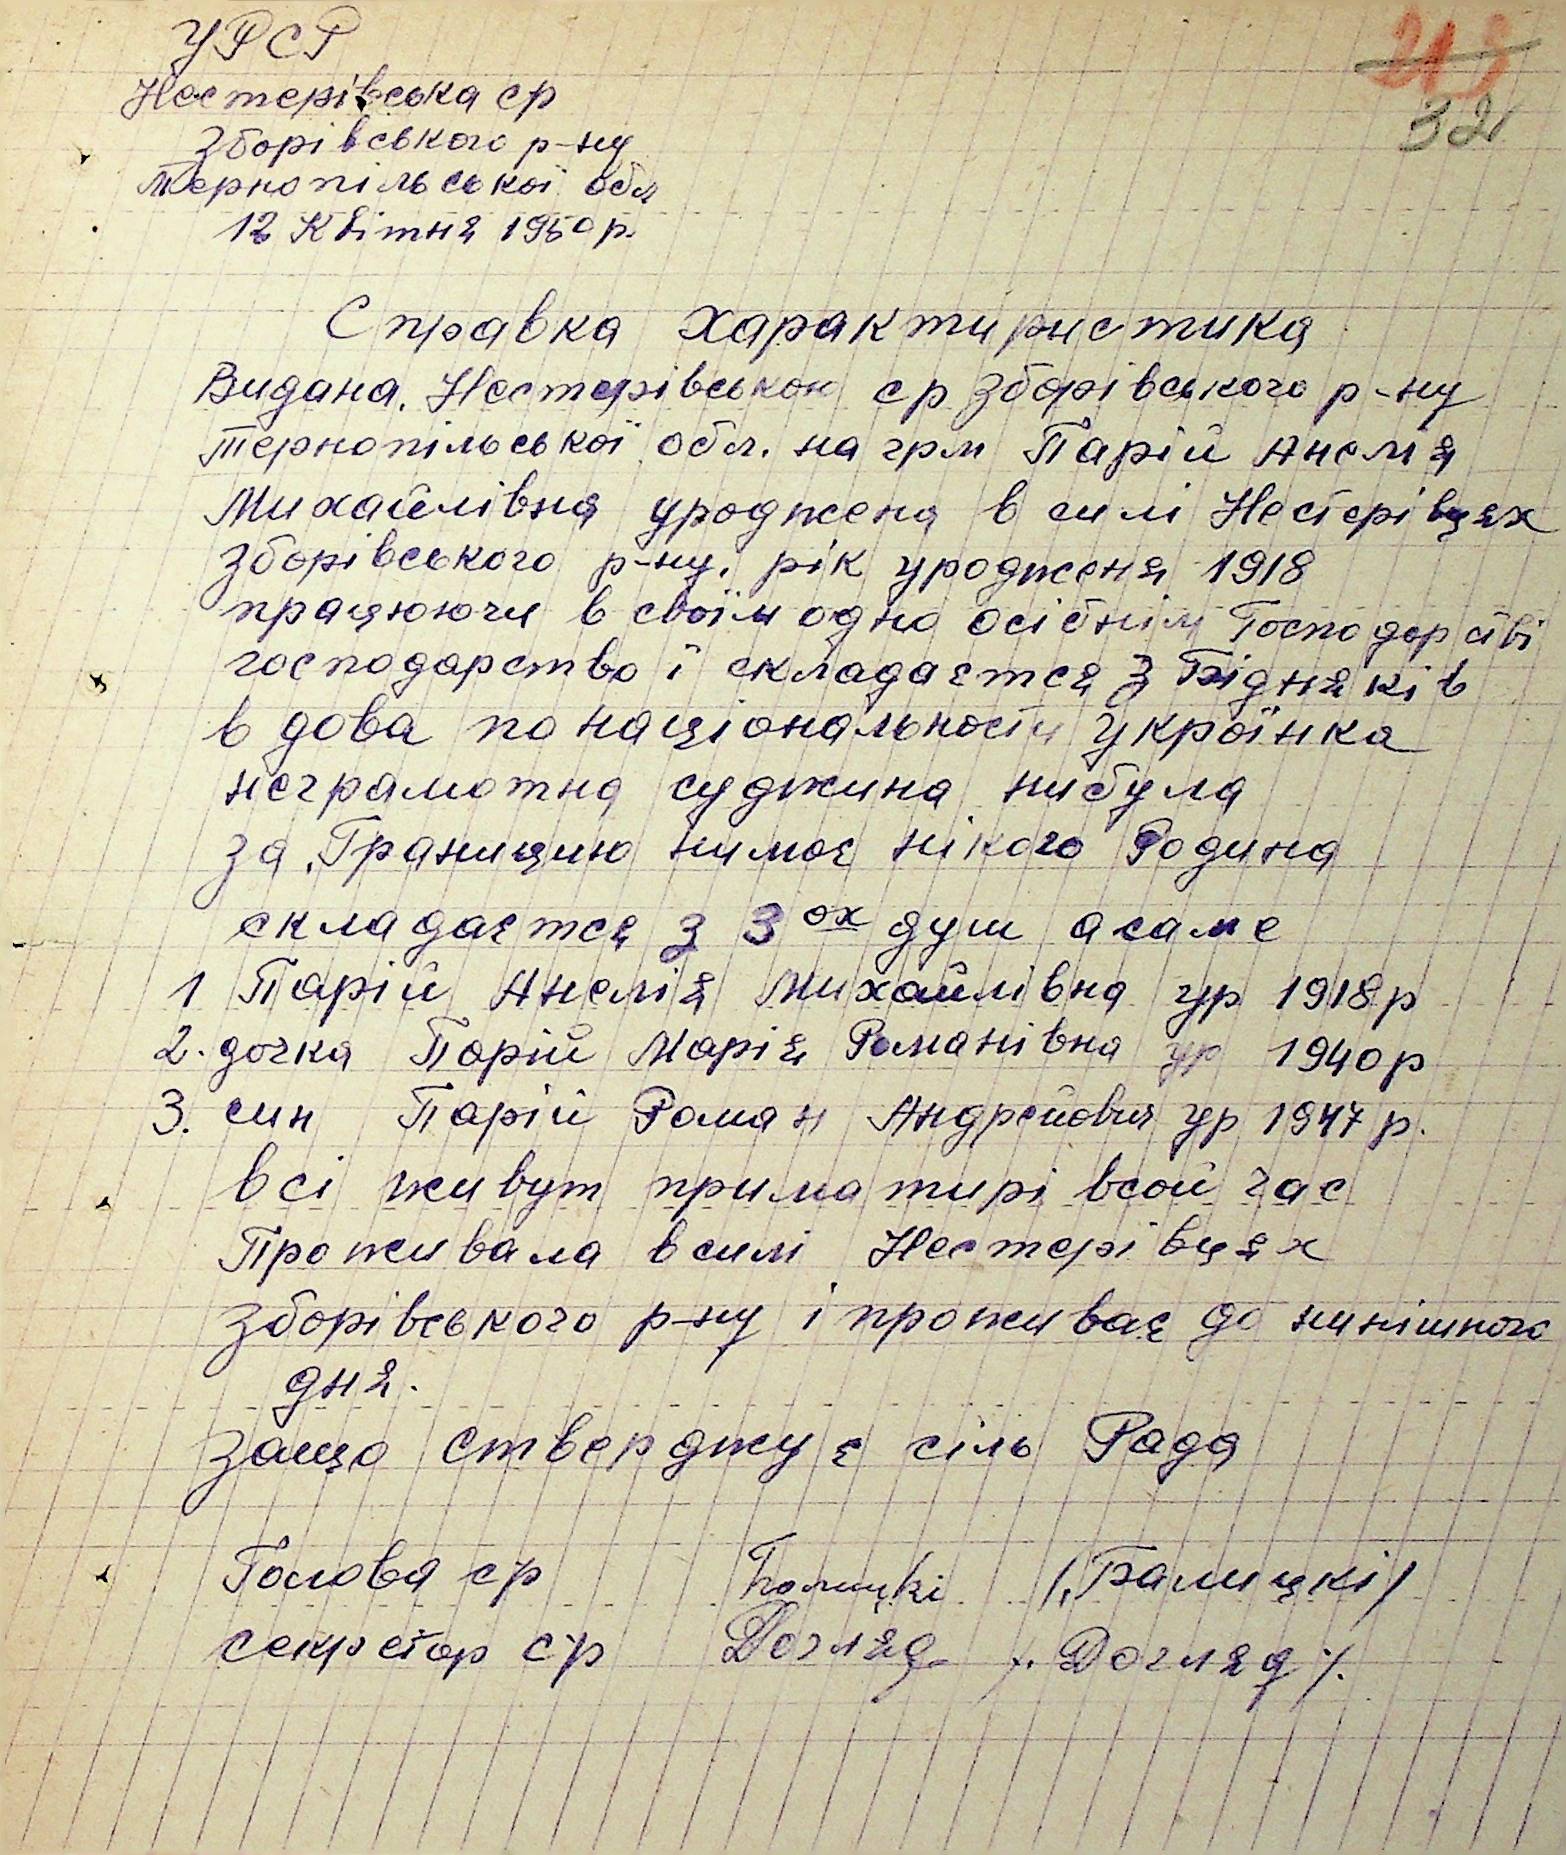 УРСР
213
32
Нестерівська ср
Зборівського р-ну
Тернопільської обл
12 Квітня 1950 р.
Справка характиристика
Видана. Нестерівською ср Зборівського р-ну
Тернопільської обл. на грм Парій Анелія
Михайлівна уроджена в силі Нестерівцях
Зборівського р-ну. рік уродженя 1918
працюючи в своїм одно осібнім Господарстві
господарство і складаєтся з Бідняків
вдова по національности Українка
неграмотна суджина нибула
за Границию нимає нікого Родина
складаєтся з 3ох душ а саме
1 Парій Анелія Михайлівна ур 1918 р
2. дочка Парій Марія Романівна ур 1940 р
3. син Парій Роман Андрейович ур 1947 р.
всі живут прима тирі всой час
Проживала в силі Нестерівцях
Зборівського р-ну і проживає до нинішного
дня.
защо стверджує сіль Рада
Голова ср Балицкі /Балицкі/
секретар с/р Догляд /. Догляд /.